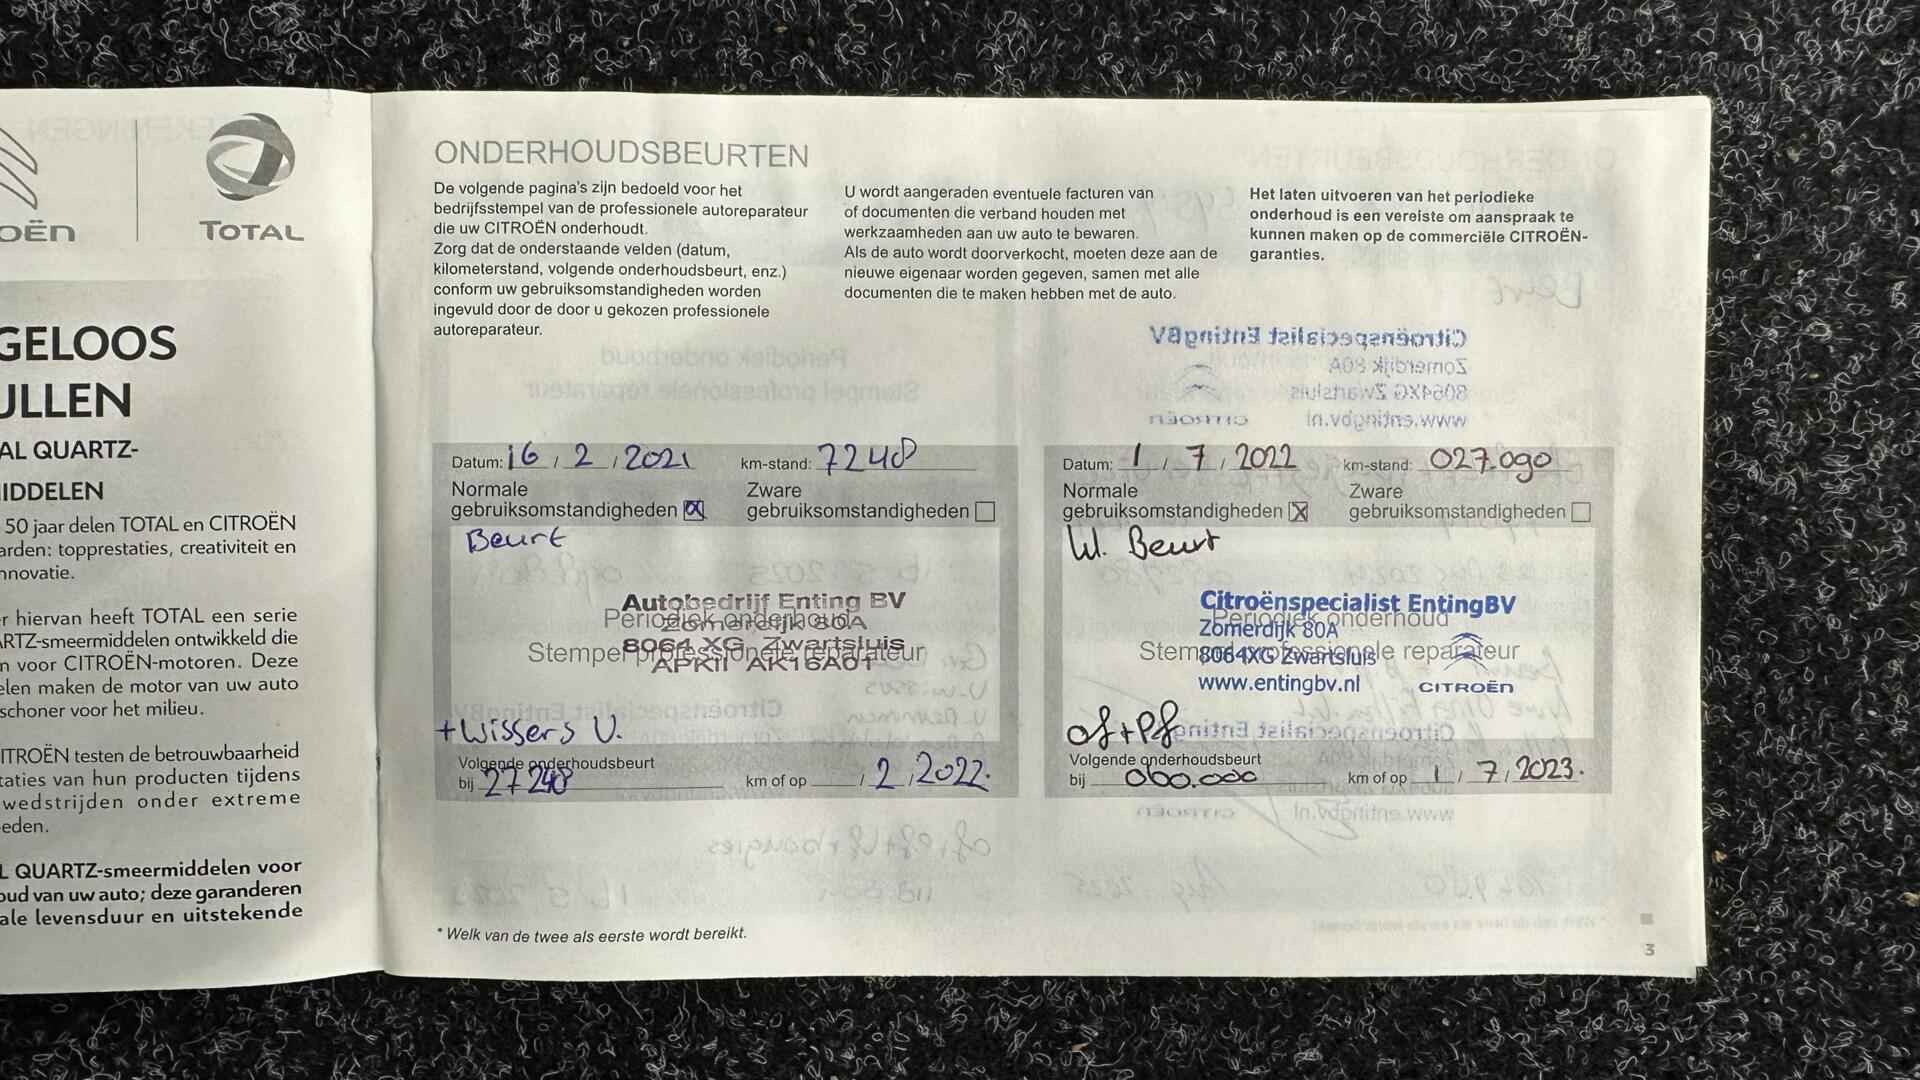 OËN
TOTAL
GELOOS
ULLEN
AL QUARTZ-
IDDELEN
50 jaar delen TOTAL en CITROËN
arden: topprestaties, creativiteit en
nnovatie.
er hiervan heeft TOTAL een serie
ARTZ-smeermiddelen ontwikkeld die
n voor CITROËN-motoren. Deze
elen maken de motor van uw auto
schoner voor het milieu.
ITROËN testen de betrouwbaarheid
taties van hun producten tijdens
wedstrijden onder extreme
eden.
L QUARTZ-smeermiddelen voor
oud van uw auto; deze garanderen
ale levensduur en uitstekende
ONDERHOUDSBEURTEN
De volgende pagina's zijn bedoeld voor het
bedrijfsstempel van de professionele autoreparateur
die uw CITROËN onderhoudt.
Zorg dat de onderstaande velden (datum,
kilometerstand, volgende onderhoudsbeurt, enz.)
conform uw gebruiksomstandigheden worden
ingevuld door de door u gekozen professionele
autoreparateur.
U wordt aangeraden eventuele facturen van
of documenten die verband houden met
werkzaamheden aan uw auto te bewaren.
Als de auto wordt doorverkocht, moeten deze aan de
nieuwe eigenaar worden gegeven, samen met alle
documenten die te maken hebben met de auto.
Het laten uitvoeren van het periodieke
onderhoud is een vereiste om aanspraak te
kunnen maken op de commerciële CITROËN-
garanties.
Datum: 16 / 2 / 2021 km-stand: 7248
Normale Zware
gebruiksomstandigheden gebruiksomstandigheden
Beurt
Autobedrijf Enting BV
Periodiek onderhoud
Zomerdijk 80A
8064 XG Zwartsluis
Stempel professionele reparateur
APKII AK16A01
+ Wissers V.
Volgende onderhoudsbeurt
bij 27248 km of op / 2 / 2022.
Datum: 1 / 7 / 2022 km-stand: 027.090
Normale Zware
gebruiksomstandigheden gebruiksomstandigheden
W. Beurt
Citroënspecialist EntingBV
Periodiek onderhoud
Zomerdijk 80A
Stempel professionele reparateur
8064XG Zwartsluis
www.entingbv.nl CITROËN
of+Pf
Volgende onderhoudsbeurt
bij 060.000 km of op 1 / 7 / 2023.
* Welk van de twee als eerste wordt bereikt.
3